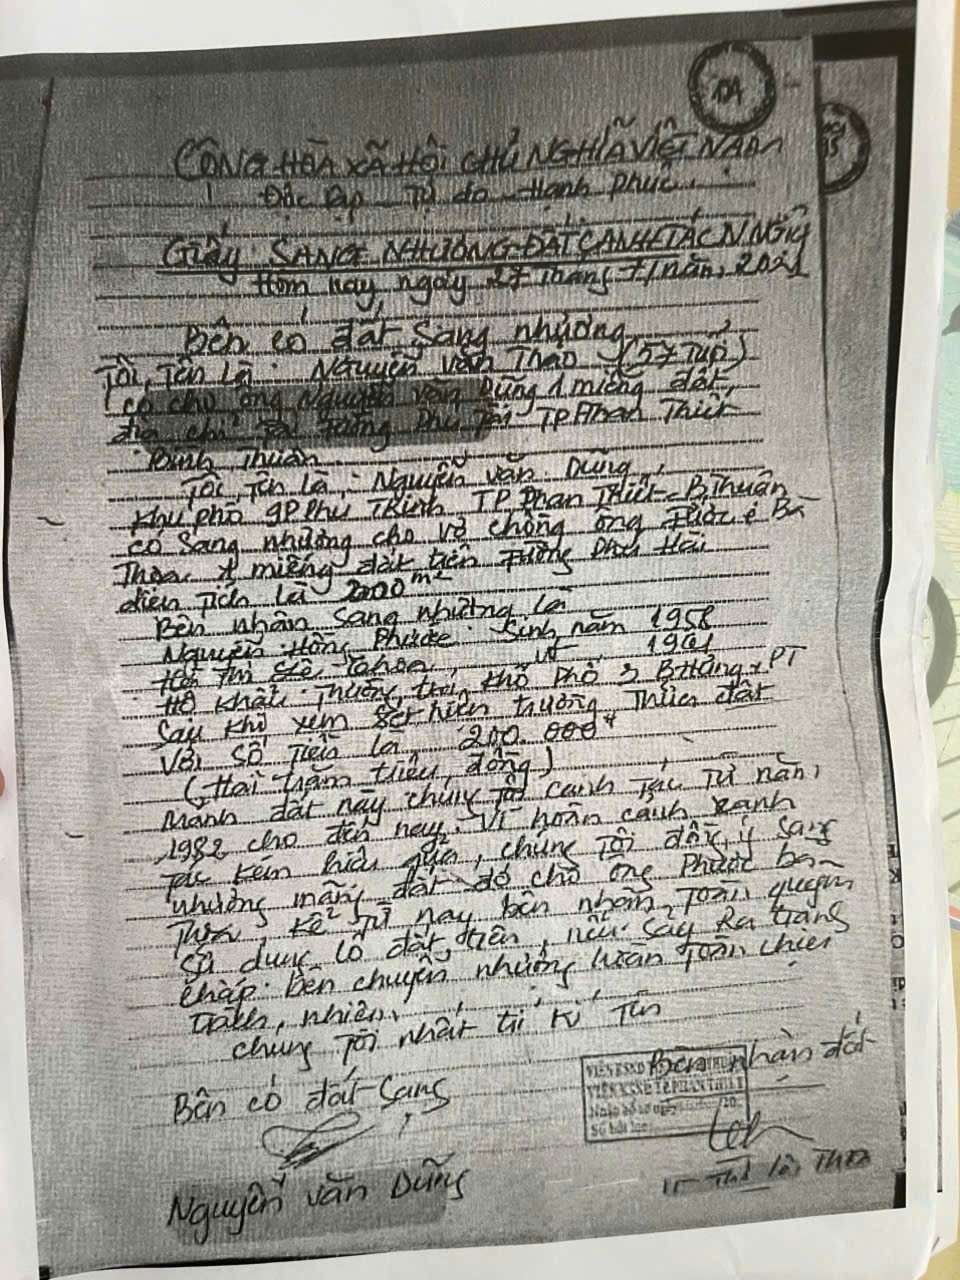 CỘNG HÒA XÃ HỘI CHỦ NGHĨA VIỆT NAM
Độc lập Tự do Hạnh phúc
Giấy SANG NHƯỢNG ĐẤT CANH TÁC N NGIỆ
Hôm nay, ngày 27 tháng 7/năm, 2021
Bên có đất Sang nhượng
Tôi, Tên Là: Nguyễn văn Thao (57 Tuổi)
có cho ông Nguyễn văn Dũng 1 miếng đất,
địa chỉ Tại Phú TP Phan Thiết
Bình Thuận
Tôi, Tên Là, Nguyễn văn Dũng,
Khu phố 9 P Phú Trinh, TP Phan Thiết - B Thuận
có Sang nhượng cho vợ chồng ông Bà
Thoa 1 miếng đất Phú Hài
diện Tích Là m²
Bên nhận Sang nhượng là
Nguyễn Hồng Phước Sinh năm 1958
Thị 1961
Hộ Khẩu Thường trú, Khu Phố 3 B Hưng, PT
Sau Khi xem xét hiện trường Thửa đất
Với Số Tiền là, 200.000
(Hai trăm triệu, đồng)
Mảnh đất này chúng Tôi canh Tác Từ năm,
1982 cho đến nay, Vì hoàn cảnh xanh
Tác kém hiệu quả, chúng Tôi đồng ý sang
nhượng mảng đất đó cho ông Phước bà
Thoa Kể Từ nay bên nhận Toàn quyền
Sử dụng lô đất trên, nếu Sảy Ra trang
Chấp bên chuyển nhượng hoàn Toàn chịu
trách, nhiên,
chúng Tôi nhất trí Kí Tên
Bên nhận đất
Bên có đất Sang
VIỆN KSND
VIỆN KSND TP PHAN THIẾT
Số bút lục
Thị Thoa
Nguyễn văn Dũng